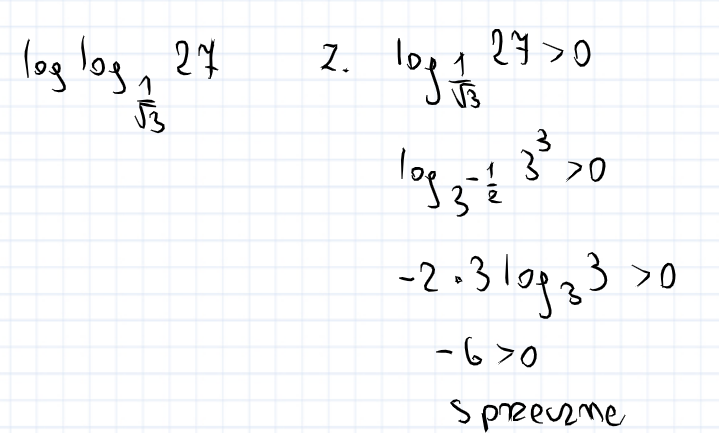 log log_{1/√3} 27
Z. log_{1/√3} 27 > 0
log_{3^{-1/2}} 3^3 > 0
-2 · 3 log_3 3 > 0
-6 > 0
sprzeczne